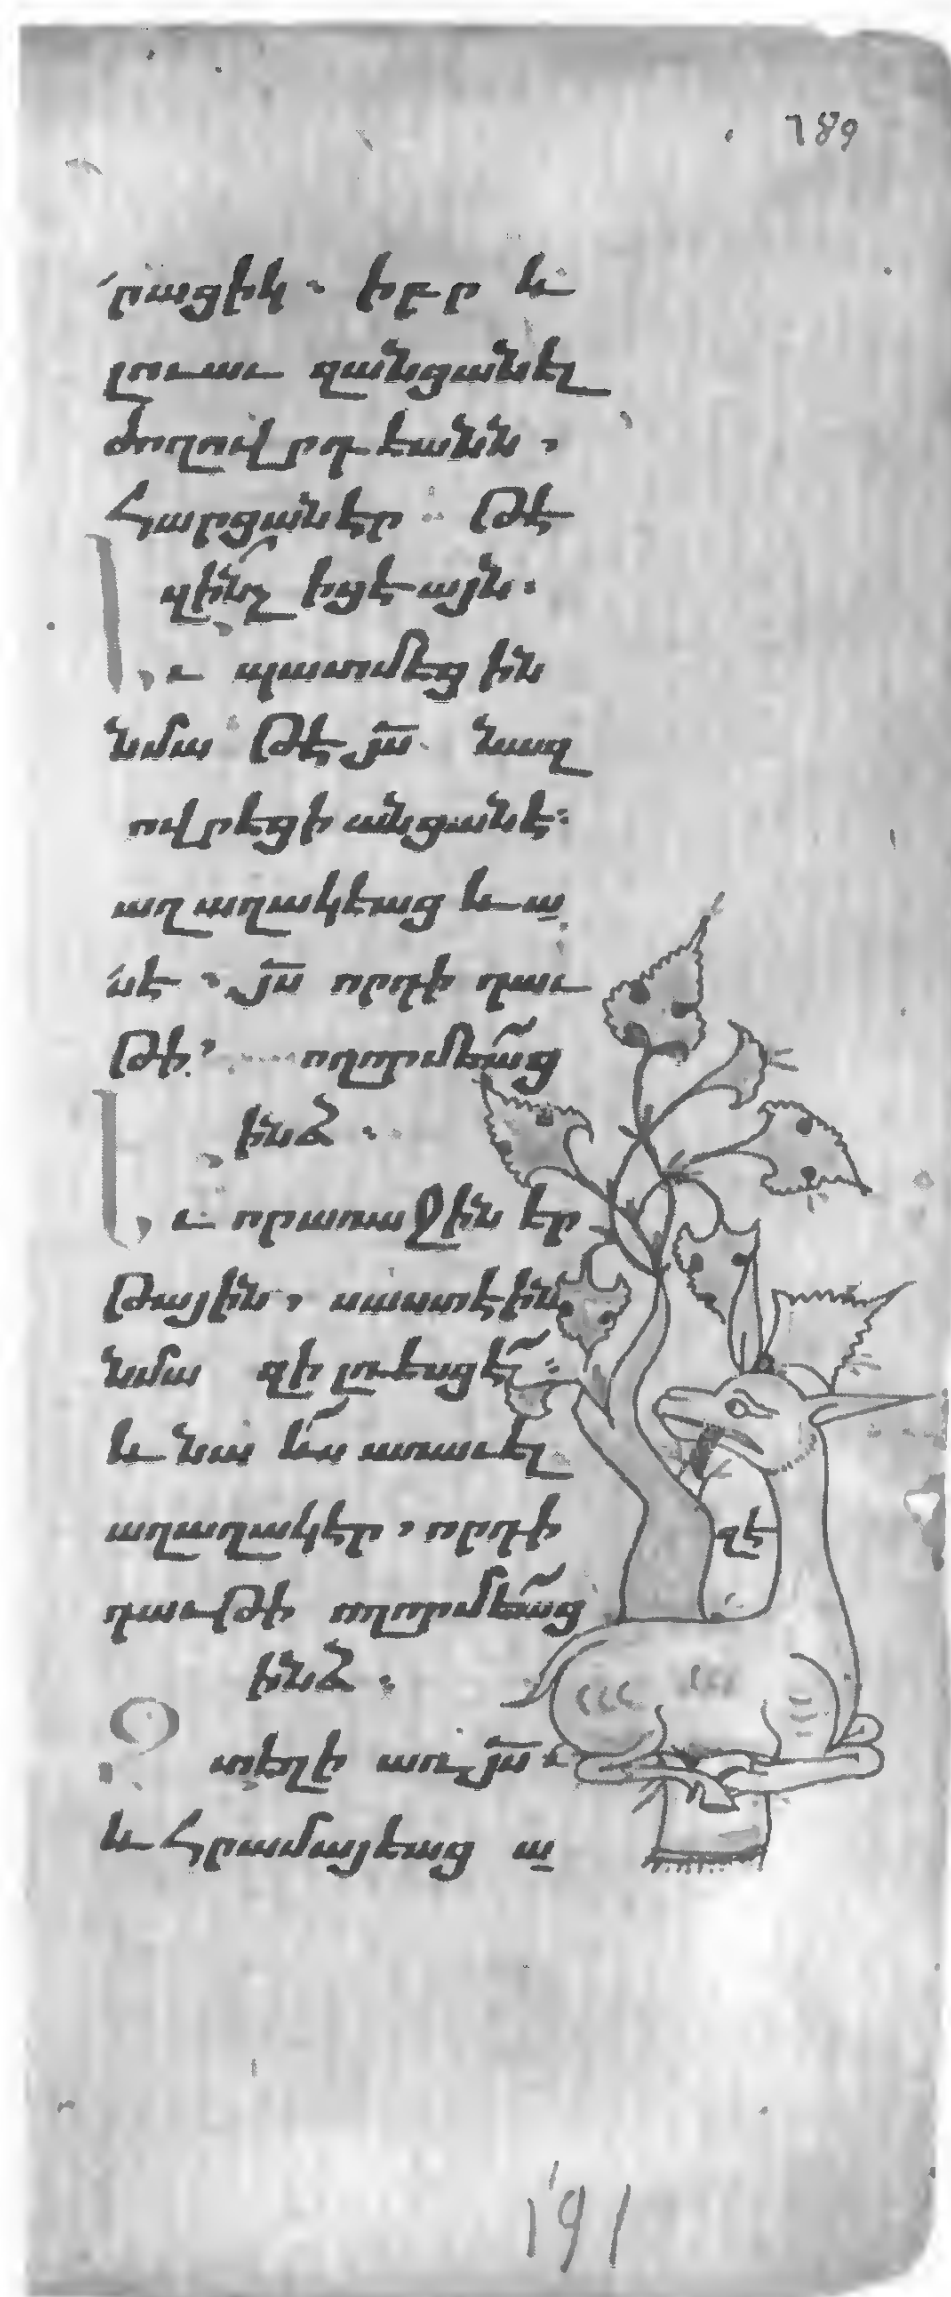 րացիկ. իբր և
լուաւ զանցանել
ժողովրդեանն,
հարցանէր թէ
զինչ իցէ այն.
Եւ պատմեցին
նմա թէ յս̅ նազ
ովրեցի անցանէ:
աղաղակեաց և ա
սէ. յս̅ որդի դաւ
թի. ողորմեա̅ց
ինձ.
Եւ որ առաջին եր
թային, սաստէին
նմա զի լռեսցէ̅:
և նա և̅ս առաւել
աղաղակէր, որդի
զէ
դաւթի ողորմեա̅ց
ինձ.
տեղի առ յս̅.
և հրամայեաց ա
189
191